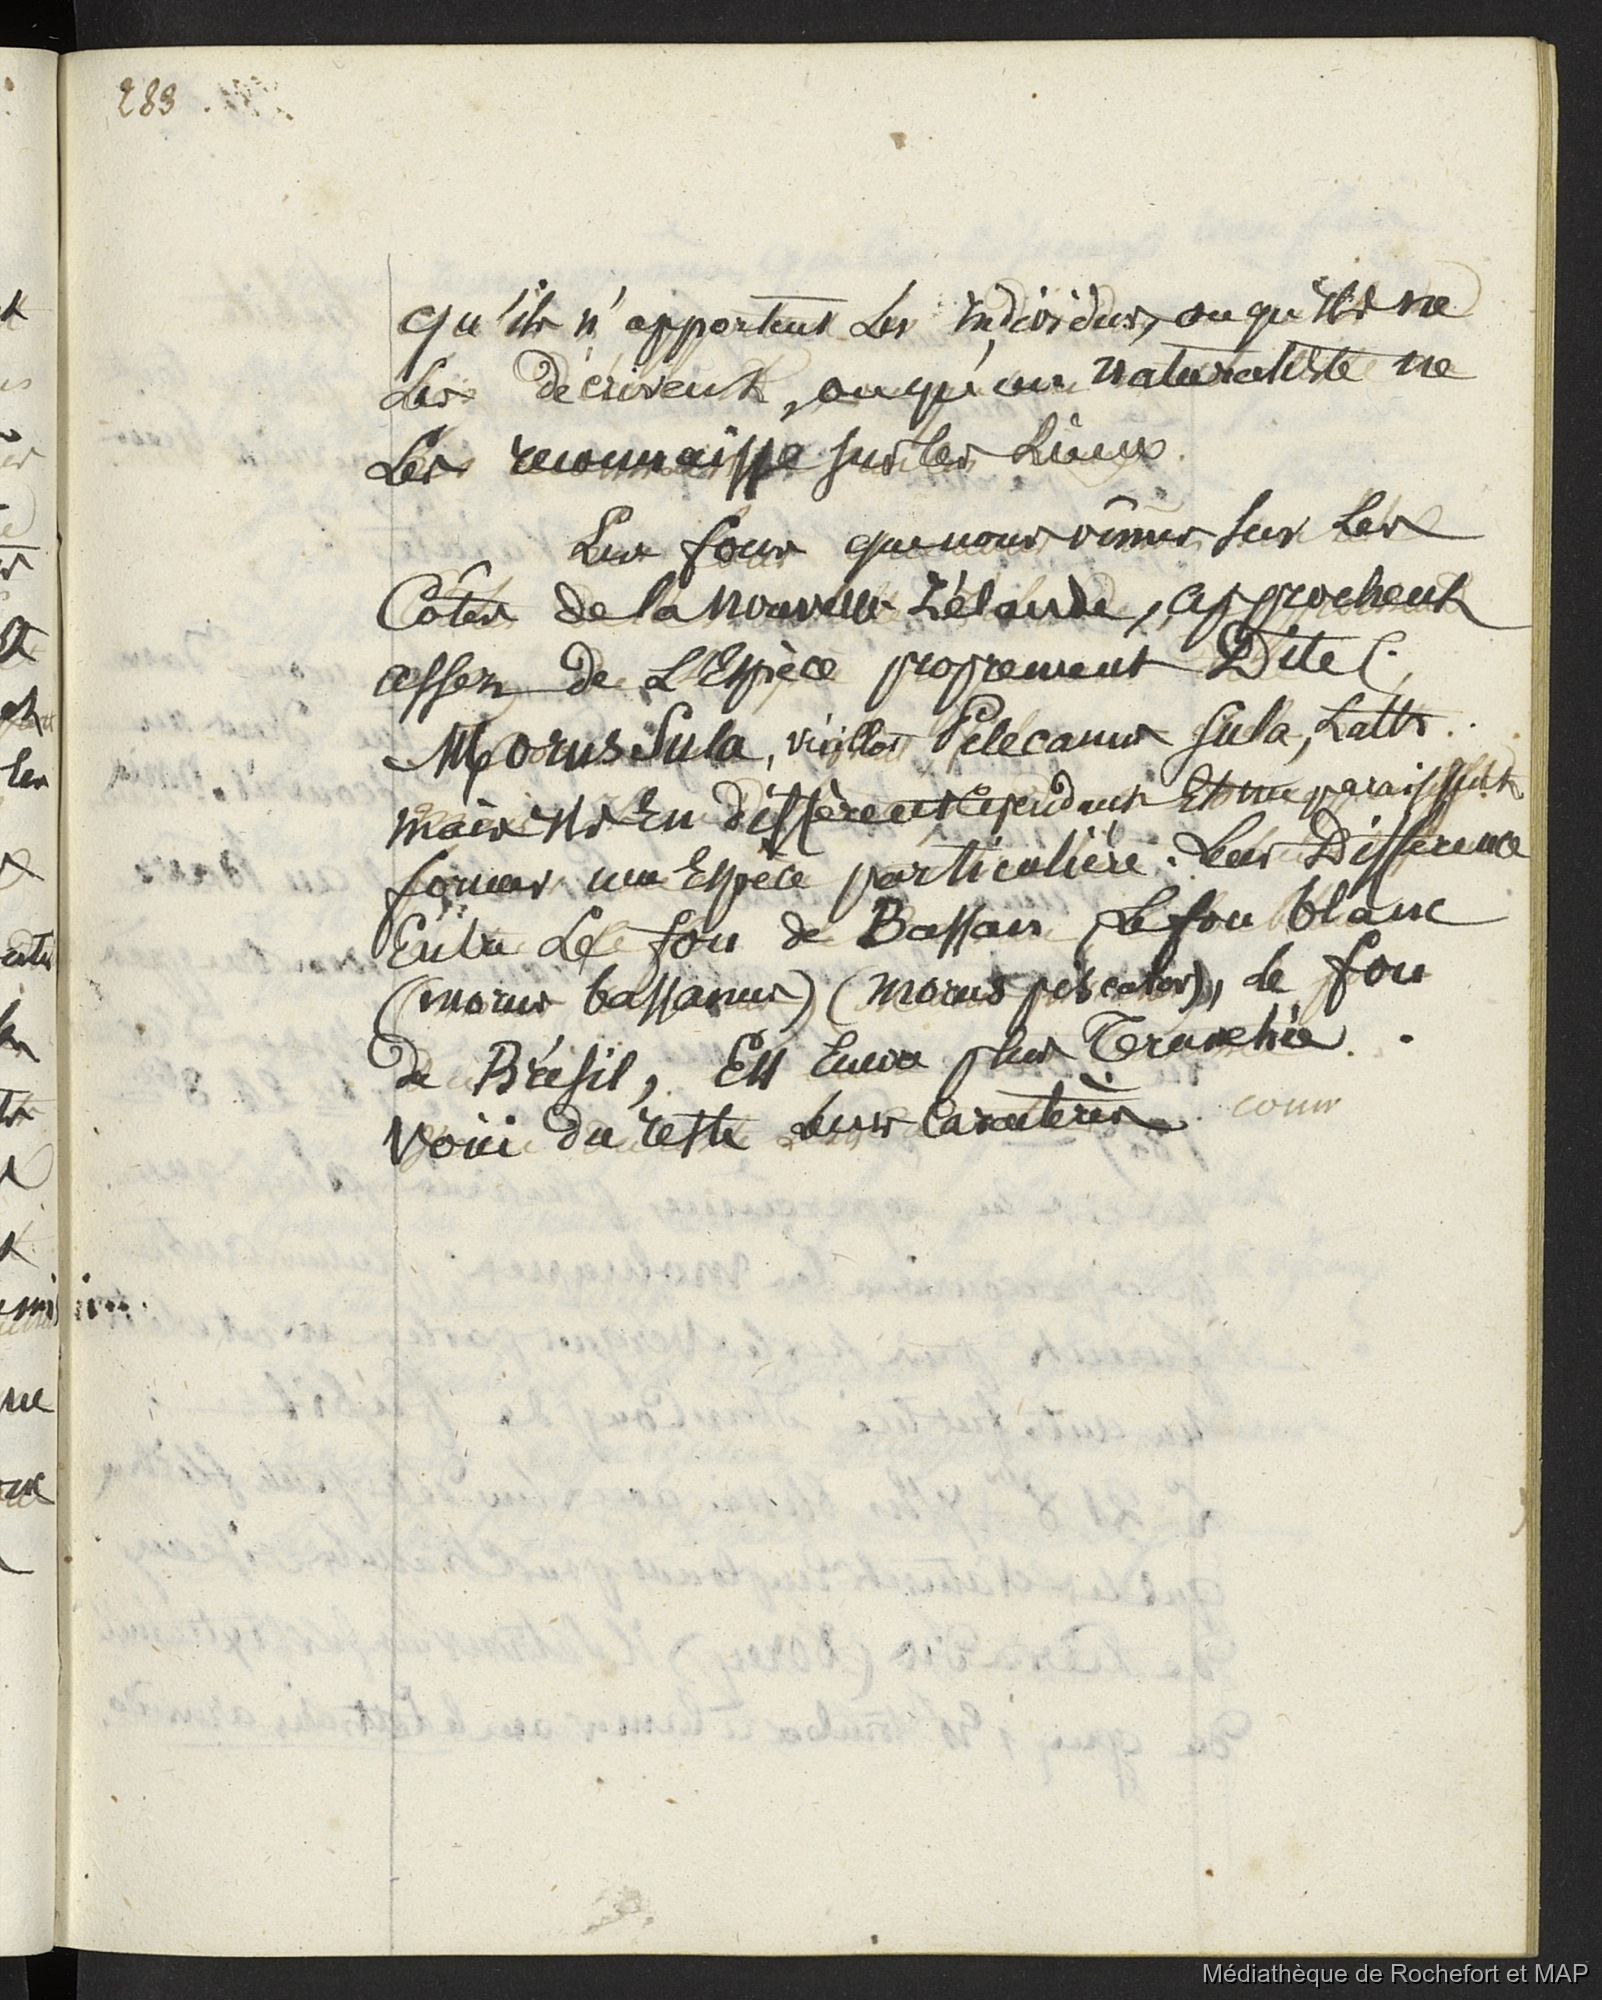 283
qu'ils n'apportent les individus, ou qu'ils ne
les décrivent, ou qu'un naturaliste ne
les reconnaisse sur les Lieux.
Les fous que nous vîmes sur les
Côtes de la nouvelle Zélande, approchent
assez de L'Espèce proprement Dite (
Morus Sula, vieillot, Pelecanus Sula, Lath.
mais ils En diffèrent cependant Et me paraissent
former une Espèce particulière. Leur Différence
Entre Le fou de Bassan, Le fou blanc
(morus bassanus) (morus piscator), le fou
de Brésil, Est Encore plus Tranchée.
Voici du reste leurs Caractères.
Médiathèque de Rochefort et MAP